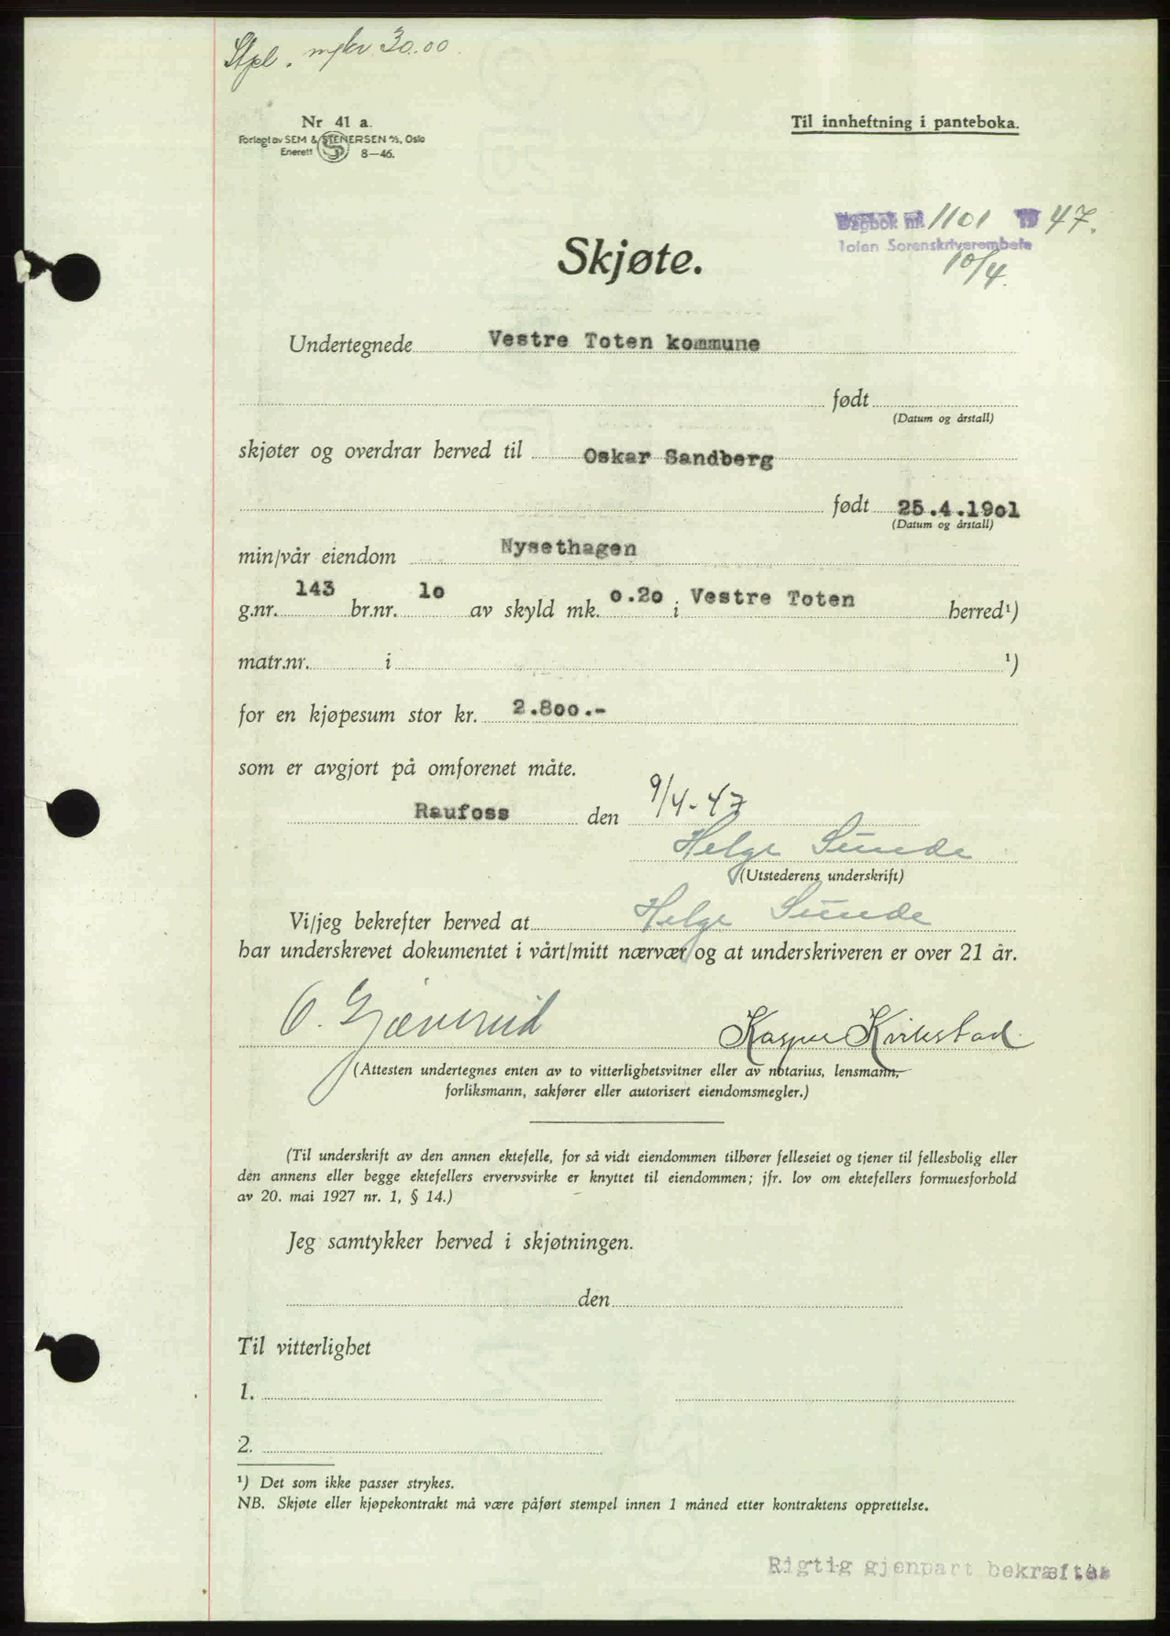 Stpl. mkr 30.00
Nr 41 a.
Forlagt av SEM & STENERSEN A/S, Oslo
Enerett 8—46.
Til innheftning i panteboka.
Dagbok nr. 1101 1947.
Toten Sorenskriverembete
10/4.
Skjøte.
Undertegnede Vestre Toten kommune
født
(Datum og årstall)
skjøter og overdrar herved til Oskar Sandberg
født 25.4.19o1
(Datum og årstall)
min/vår eiendom Nysethagen
g.nr. 143 br.nr. 1o av skyld mk. o.2o i Vestre Toten herred¹)
matr.nr. i ¹)
for en kjøpesum stor kr. 2.8oo.-
som er avgjort på omforenet måte.
Raufoss den 9/4-47
Helge Sunde
(Utstederens underskrift)
Vi/jeg bekrefter herved at Helge Sunde
har underskrevet dokumentet i vårt/mitt nærvær og at underskriveren er over 21 år.
O. Kasper Kvikstad
(Attesten undertegnes enten av to vitterlighetsvitner eller av notarius, lensmann,
forliksmann, sakfører eller autorisert eiendomsmegler.)
(Til underskrift av den annen ektefelle, for så vidt eiendommen tilhører felleseiet og tjener til fellesbolig eller
den annens eller begge ektefellers ervervsvirke er knyttet til eiendommen; jfr. lov om ektefellers formuesforhold
av 20. mai 1927 nr. 1, § 14.)
Jeg samtykker herved i skjøtningen.
den
Til vitterlighet
1.
2.
¹) Det som ikke passer strykes.
NB. Skjøte eller kjøpekontrakt må være påført stempel innen 1 måned etter kontraktens opprettelse.
Rigtig gjenpart bekræftes